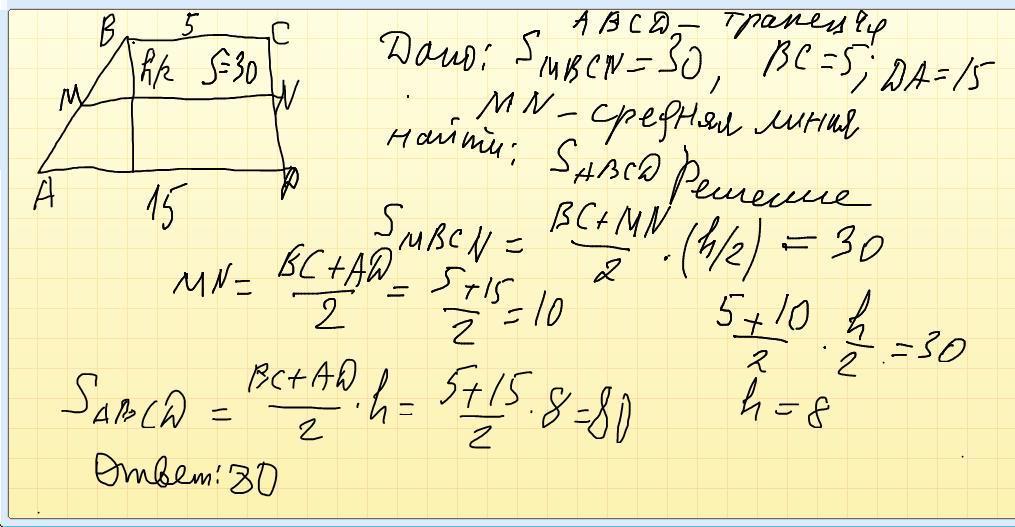 B 5 C
h/2 S=30
M N
A D
15
ABCD – трапеция
Дано: S_MBCN = 30, BC = 5; DA = 15
MN – средняя линия
найти: S_ABCD
Решение
S_MBCN = (BC + MN)/2 · (h/2) = 30
MN = (BC + AD)/2 = (5 + 15)/2 = 10
(5 + 10)/2 · h/2 = 30
h = 8
S_ABCD = (BC + AD)/2 · h = (5 + 15)/2 · 8 = 80
Ответ: 80